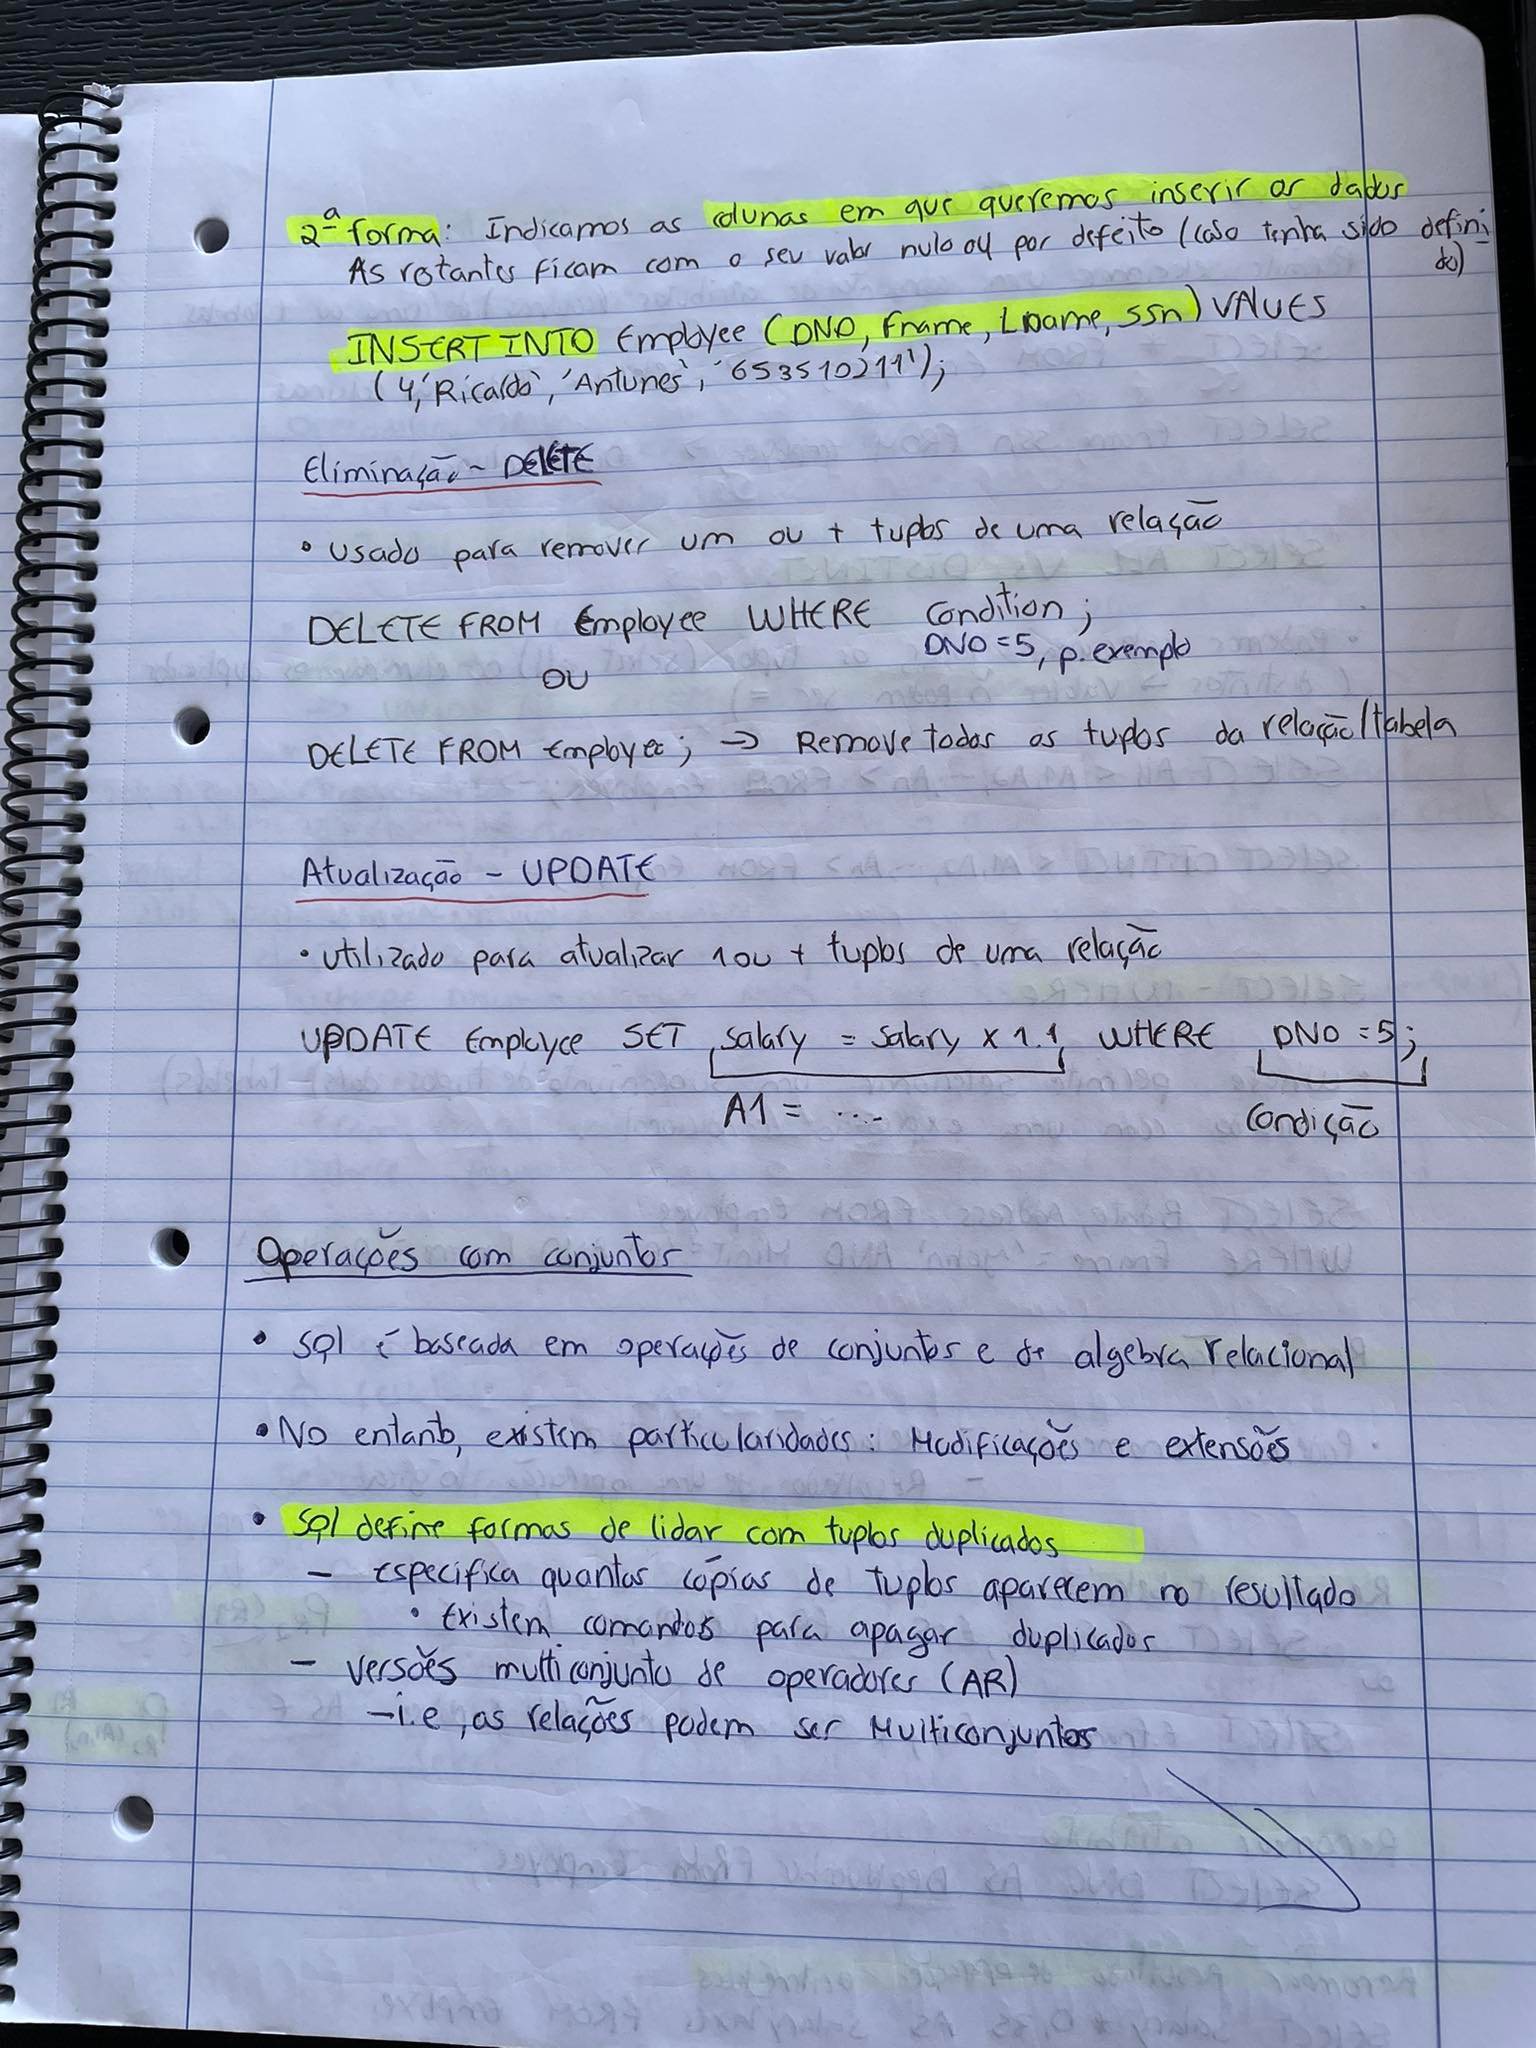 2ª forma: Indicamos as colunas em que queremos inserir os dados
As restantes ficam com o seu valor nulo ou por defeito (caso tenha sido defini
do)
INSERT INTO Employee (DNO, Fname, Lname, ssn) VALUES
(4,'Ricardo','Antunes','653510211');
Eliminação - DELETE
• usado para remover um ou + tuplos de uma relação
DELETE FROM Employee WHERE condition;
DNO=5, p. exemplo
OU
DELETE FROM Employee; → Remove todos os tuplos da relação/tabela
Atualização - UPDATE
• utilizado para atualizar 1 ou + tuplos de uma relação
UPDATE Employee SET salary = salary x 1.1 WHERE DNO =5;
A1 = .... condição
Operações com conjuntos
• sql é baseada em operações de conjuntos e de algebra relacional
• No entanto, existem particularidades: Modificações e extensões
• sql define formas de lidar com tuplos duplicados
- Especifica quantas cópias de tuplos aparecem no resultado
• Existem comandos para apagar duplicados
- versões multiconjunto de operadores (AR)
- i.e, as relações podem ser Multiconjuntos